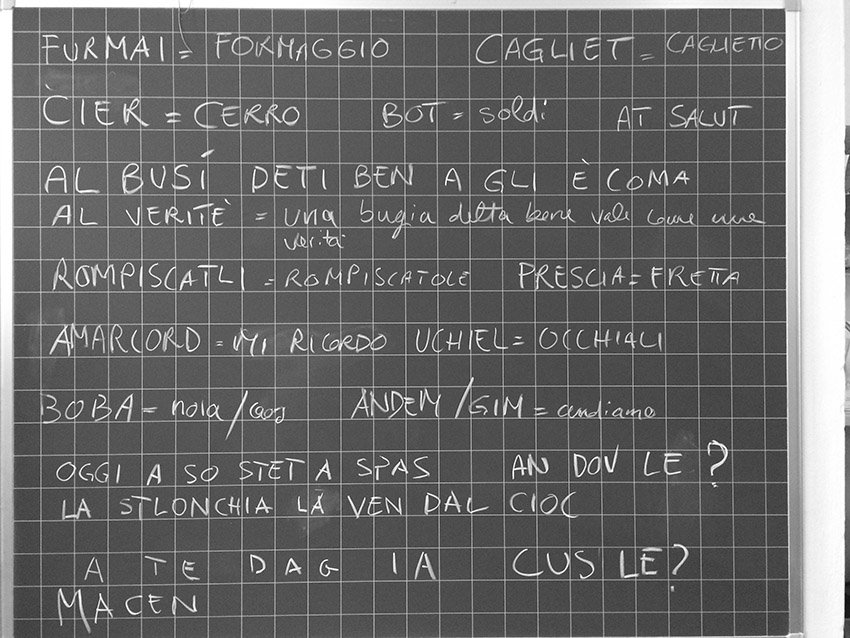 FURMAI = FORMAGGIO CAGLIET = CAGLIETTO
ČIER = CERRO BOT = soldi AT SALUT
AL BUSÍ DETI BEN A GLI È COMA
AL VERITÈ = una bugia detta bene vale come una
verità
ROMPISCATLI = ROMPISCATOLE PRESCIA = FRETTA
AMARCORD = MI RICORDO UCHIEL = OCCHIALI
BOBA = noia / caos ANDEM / GIM = andiamo
OGGI A SO STET A SPAS AN DOV LE ?
LA STLONCHIA LA VEN DAL CIOC
A TE DAG IA CUS LE ?
MACEN